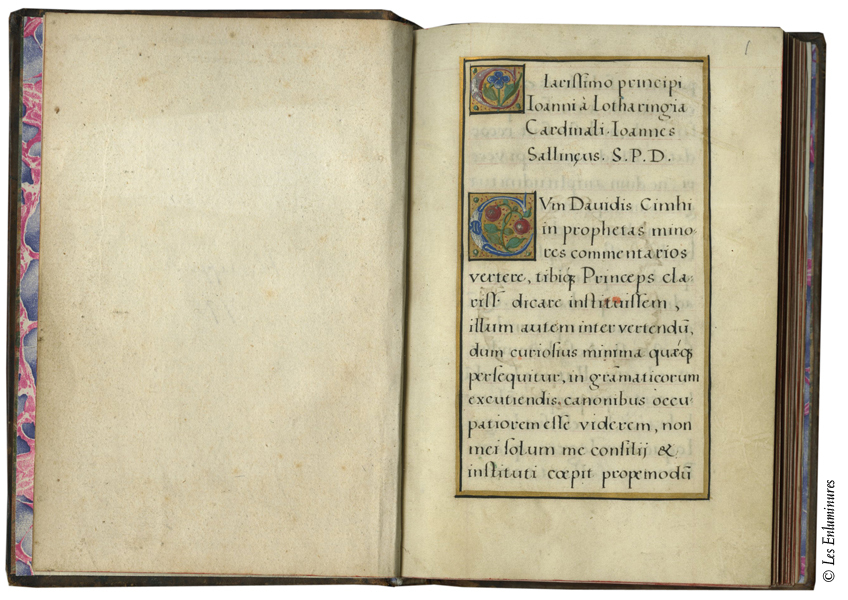 1
Clarissimo principi
Ioanni à Lotharingia
Cardinali Ioannes
Sallinęus. S. P. D.
CVm Dauidis Cimhi
in prophetas mino-
res commentarios
vertere, tibiq; Princeps cla-
riss. dicare instituissem,
illum autem inter vertendū,
dum curiosius minima quæq;
persequitur, in grāmaticorum
excutiendis canonibus occu
patiorem esse viderem, non
mei solum me consilij &
instituti cœpit propemodū
© Les Enluminures